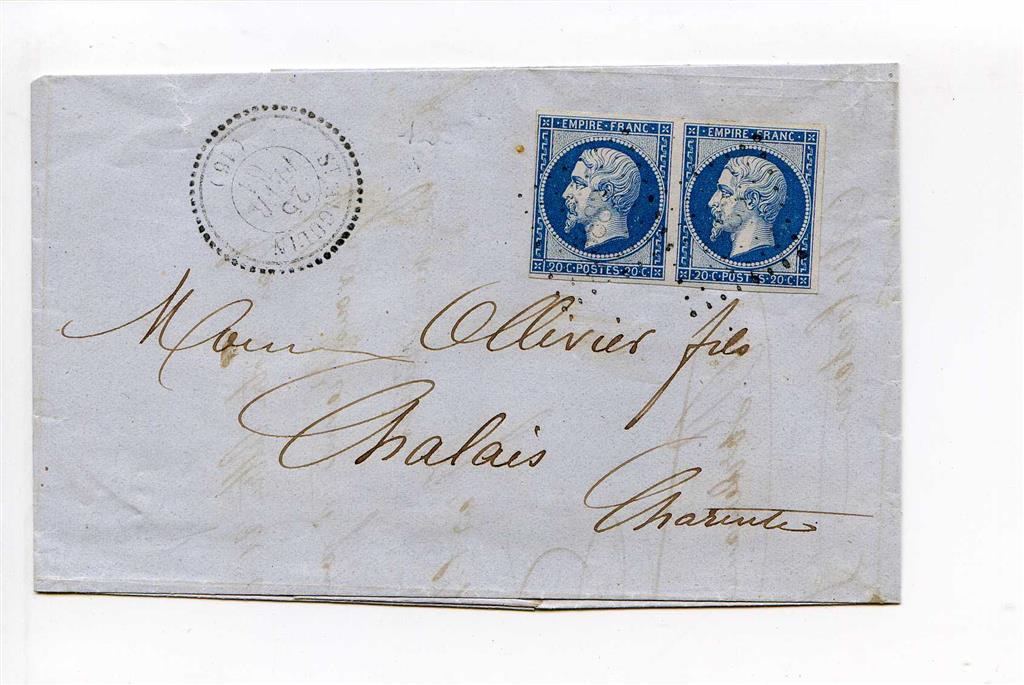 EMPIRE FRANC
EMPIRE FRANC
20·C·POSTES·20·C·
20·C·POSTES·20·C·
(16)
25
Ollivier fils
Chalais
Charente